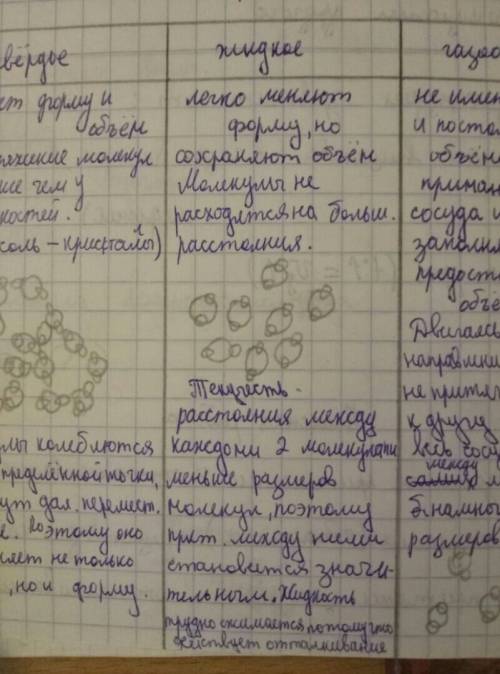 вёрдое
ет форму и
объём
тяжение молекул
ше чем у
костей.
соль – кристаллы)
мы колеблются
пределённой точки,
ут дал. перемест.
е. Поэтому оно
яет не только
, но и форму.
жидкое
легко меняют
форму, но
сохраняют объём
Молекулы не
расходятся на больш.
расстояния.
Текучесть -
расстояния между
каждыми 2 молекулами
меньше размеров
молекул, поэтому
прит. между ними
становится значи-
тельным. Жидкость
трудно сжимается потому что
действует отталкивание
газоо
не имен
и пост
объём
принам
сосуда и
заполня
предост
объё
Двигаясь
направлени
не притя
к другу
весь сосу
между
м
б. намног
размеров